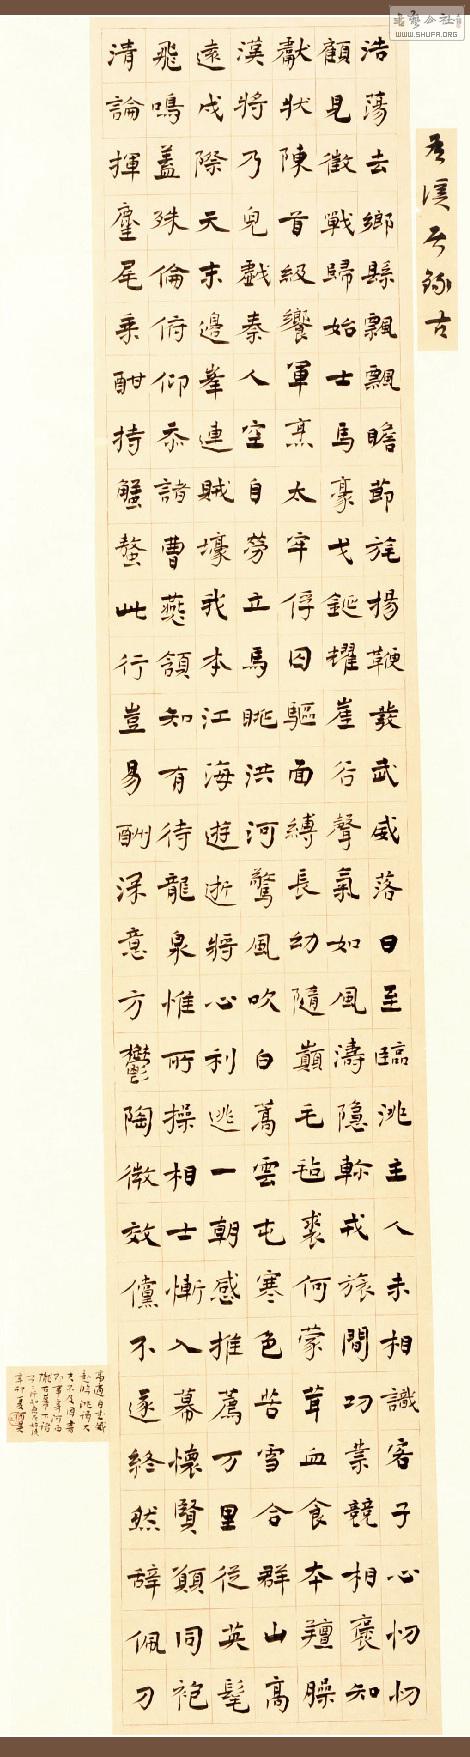 浩蕩去鄉縣飄飄瞻節旄揚鞭發武威落日至臨洮主人未相識客子心忉忉
顧見徵戰歸始士馬豪戈鋋耀崖谷聲氣如風濤隱軫戎旅間功業競相褒知
獻狀陳首級饗軍烹太牢俘囚驅面縛長幼隨巔毛毡裘何蒙茸血食本羶臊
漢將乃兒戲秦人空自勞立馬眺洪河驚風吹白蒿雲屯寒色苦雪合群山高
遠戍際天末邊峯連賊壕我本江海遊逝將心利逃一朝感推薦万里從英髦
飛鳴蓋殊倫俯仰忝諸曹燕頷知有待龍泉惟所操相士慚入幕懷賢願同袍
清論揮麈尾乘酣持蟹螯此行豈易酬深意方鬱陶微效儻不遂終然辭佩刀
WWW.SHUFA.ORG